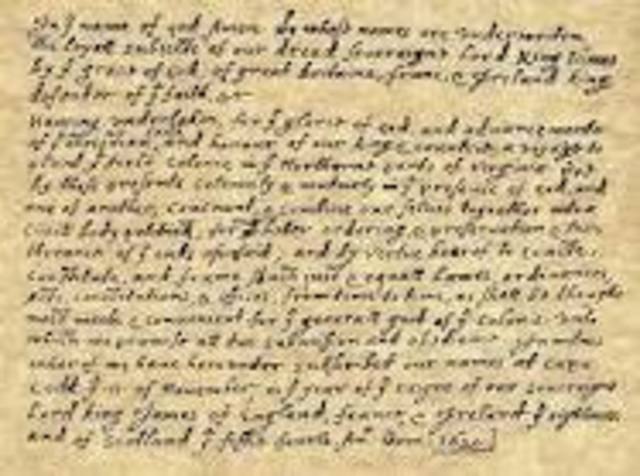 name of god Amen. whose names are underwriten
the loyall subjects of our dread soveraigne Lord King James
by ye grace of god, of great Britaine, franc, & Ireland king
defender of ye faith, &c
Haveing undertaken, for ye glorie of god, and advancemente
of and honour of our king & countrie, a voyage to
plant ye first colonie in ye Northerne parts of Virginia doe
by these presents solemnly & mutualy in ye presence of god, and
one of another, covenant, & combine our selves togeather into
body politick, for better ordering, & preservation &
therance of ye ends aforesaid, and by vertue hearof to enacte,
constitute, and frame just & equall lawes, ordinances,
constitutions, & offices, from time to time, as shall be thought
most meete & convenient for ye generall good of ye colonie: unto
which we promise all due submission and obedience.
we have hereunder subscribed our names at Cap
Codd ye 11 of November in ye year of ye raigne of our soveraigne
Lord king James of England, france, & Ireland ye
and of Scotland ye fiftie fourth. Dom 1620